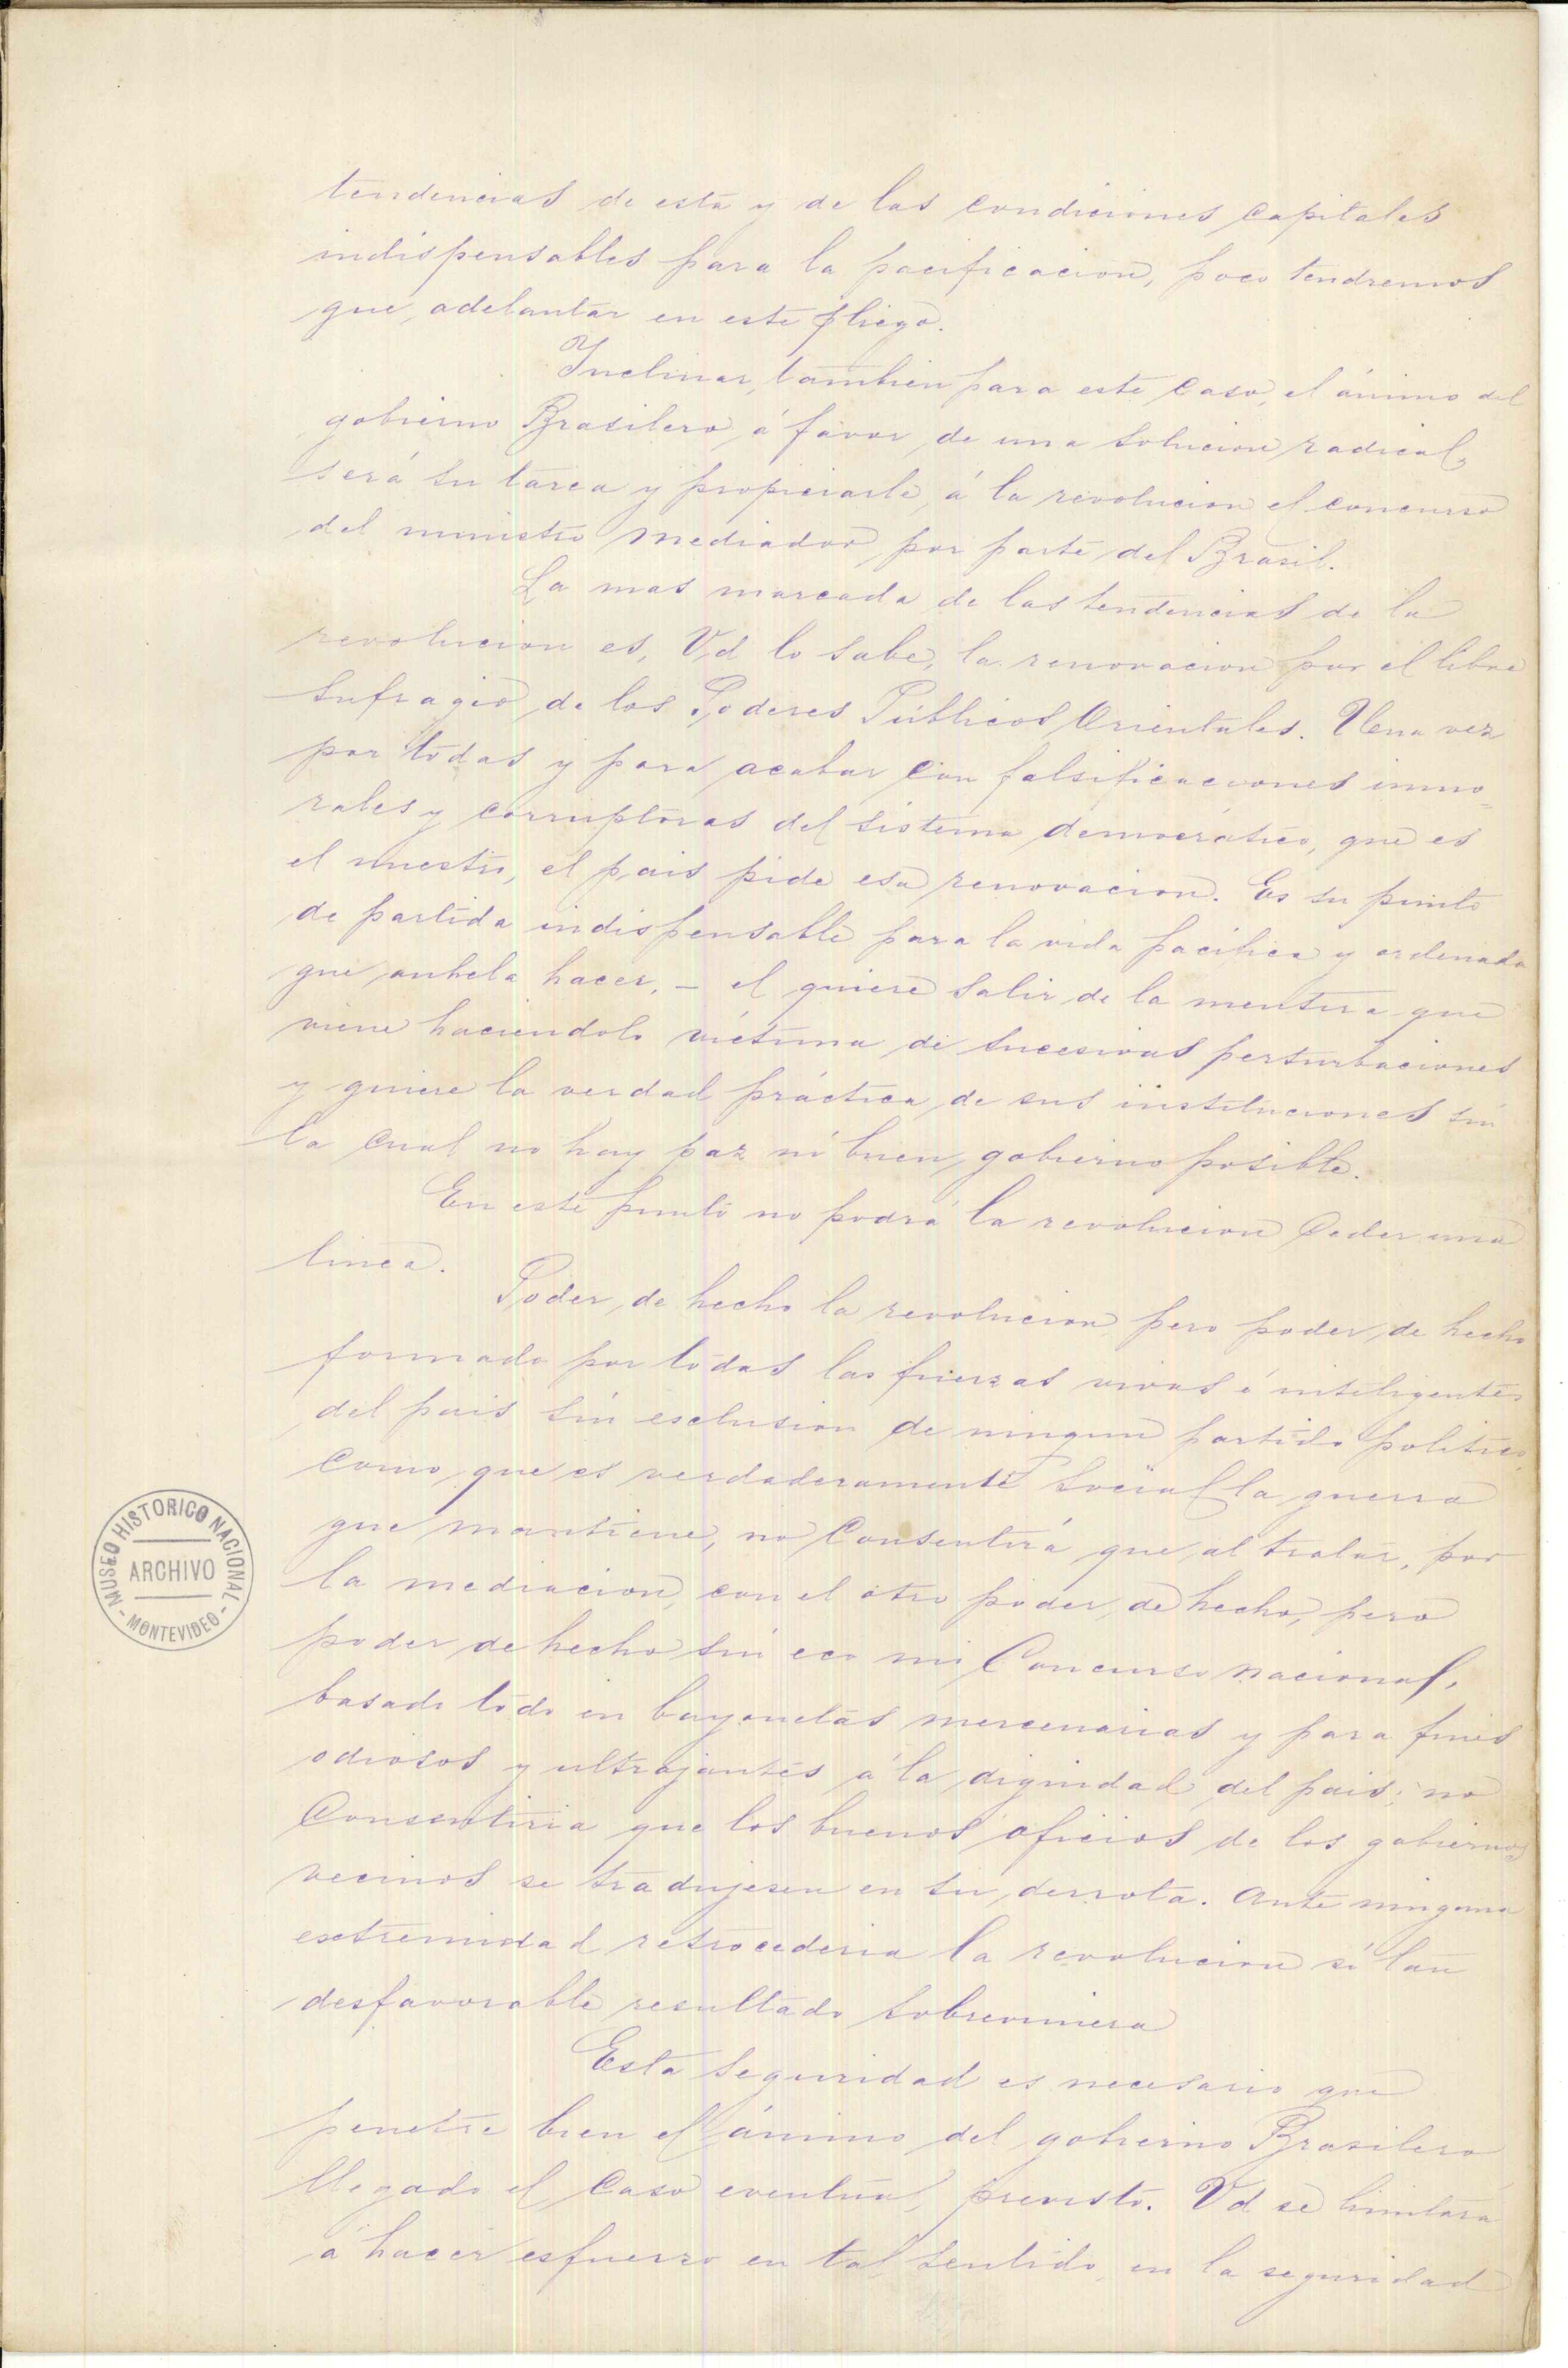 tendencias de esta y de las condiciones capitales
indispensables para la pacificacion, poco tendremos
que adelantar en este pliego.
Inclinar, tambien para este caso, el ánimo del
gobierno Brasilero á favor de una solucion radical,
será su tarea y propiciarle á la revolucion el concurso
del ministro mediador por parte del Brasil.
La mas marcada de las tendencias de la
revolucion es, Vd lo sabe, la renovacion por el libre
sufragio de los Poderes Públicos Orientales. Una vez
por todas y para acabar con falsificaciones inmo=
rales y corruptoras del sistema democrático, que es
el nuestro, el pais pide esa renovacion. Es su punto
de partida indispensable para la vida pacífica y ordenada
que anhela hacer, _ el quiere salir de la mentira que
viene haciendolo víctima de sucesivas perturbaciones
y quiere la verdad práctica de sus instituciones sin
la cual no hay paz ni buen gobierno posible.
En este punto no podrá la revolucion ceder una
linea.
Poder de hecho la revolucion pero poder de hecho
formado por todas las fuerzas vivas é inteligentes
del pais sin esclusion de ningun partido politico,
como que es verdaderamente social la guerra
que mantiene, no consentirá que al tratar, por
la mediacion, con el otro poder de hecho, pero
poder de hecho sin eco ni concurso nacional,
basado todo en bayonetas mercenarias y para fines
odiosos y ultrajantes á la dignidad del pais; no
consentiria que los buenos oficios de los gobiernos
vecinos se tradujesen en su derrota. Ante ninguna
estremidad retrocederia la revolucion si tan
desfavorable resultado sobreviniera
Esta seguridad es necesario que
penetre bien el ánimo del gobierno Brasilero
llegado el caso eventual previsto. Vd se limitará
á hacer esfuerzo en tal sentido en la seguridad
MUSEO HISTORICO NACIONAL
ARCHIVO
- MONTEVIDEO -